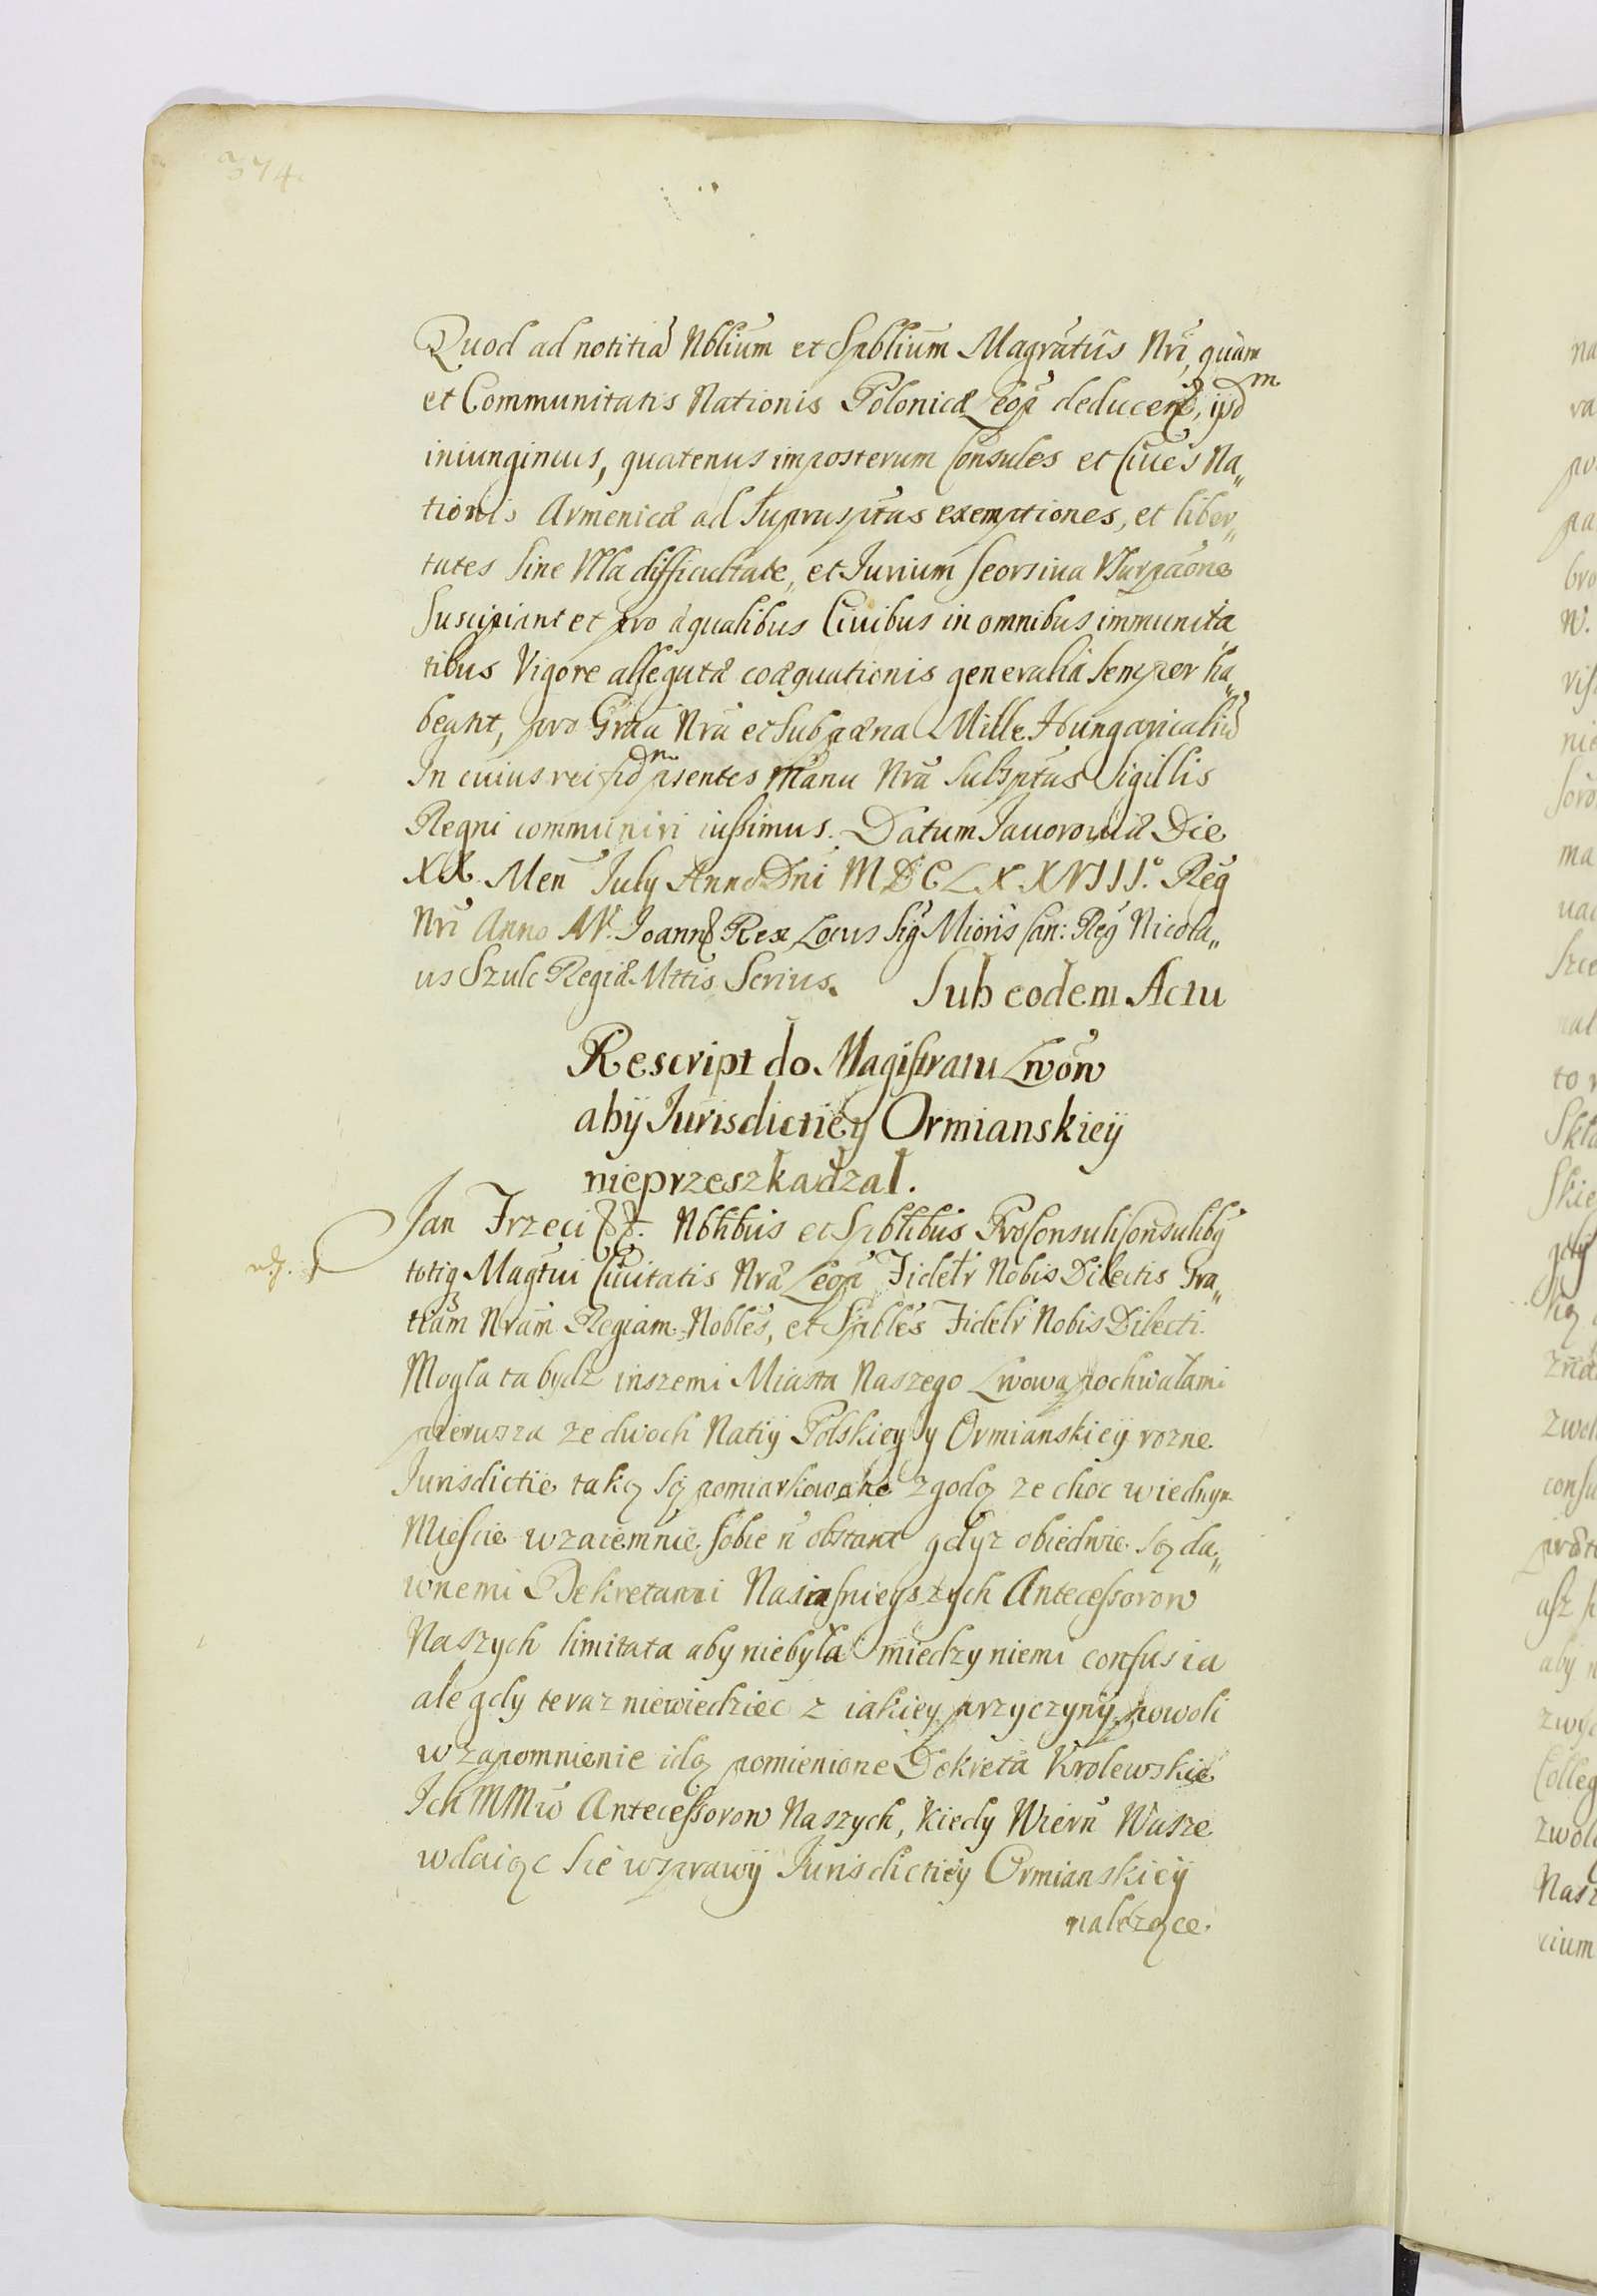 374.
Quod ad notitiã Nblium et Spblium Magratus Nri, quam
et Communitatis Nationis Polonicæ Leop deducen, ijsd m
iniungimus, quatenus imposterum Consules et Ciues Na„
tionis Armenicæ ad Suprasptas exemptiones, et liber„
tates Sine Vlla difficultate, et Iurium seorsiua Vsurpaone
Suscipiant et pro æqualibus Ciuibus in omnibus immunita
tibus Vigore allegatæ coæquationis generalia Semper ha„
beant, pro Graa Nra et Sub pæna Mille Hungaricaliũ
In cuius rei fid m psentes Manu Nra Subsptas Sigillis
Regni communiri iussimus. Datum Iauorouiæ Die
XX. Men July Anno Dni MDCLXXVIII.° Reg
Nri Anno IV. Joannes Rex Locus Sig Mioris Can: Reg Nicola„
us Szulc Regiæ Mttis Scrius.
Sub eodem Actu
Rescript do Magistratu Lwow
aby Iurisdictiey Ormianskiey
nieprzeszkadzal.
Jan Trzeci &. Nblibus et Spblibus ProConsuli Consulibq
totiq Magtui Ciuitatis Nræ Leop Fidelr Nobis Dilectis Gra„
tiam Nram Regiam. Nobles, et Spbles Fidelr Nobis Dilecti.
Mogła ta bydz inszemi Miasta Naszego Lwowa pochwałami
pierwsza ze dwoch Natiy Polskiey y Ormianskiey rozne
Iurisdictie taką są pomiarkowane zgodą ze choc wiednym
Mieście wzaiemnie sobie n obstant gdyz obiedwie są da„
wnemi Dekretami Nasiasnieyszych Antecessorow
Naszych limitata aby niebyła miedzy niemi confusia
ale gdy teraz niewiedziec z iakiey przyczyny powoli
w zapomnienie idą pomienione Dekreta Krolewskie
Ich MMw Antecessorow Naszych, Kiedy Wiern Wasze
wdaiąc Sie wsprawy Iurisdictiey Ormianskiey
nalezące.